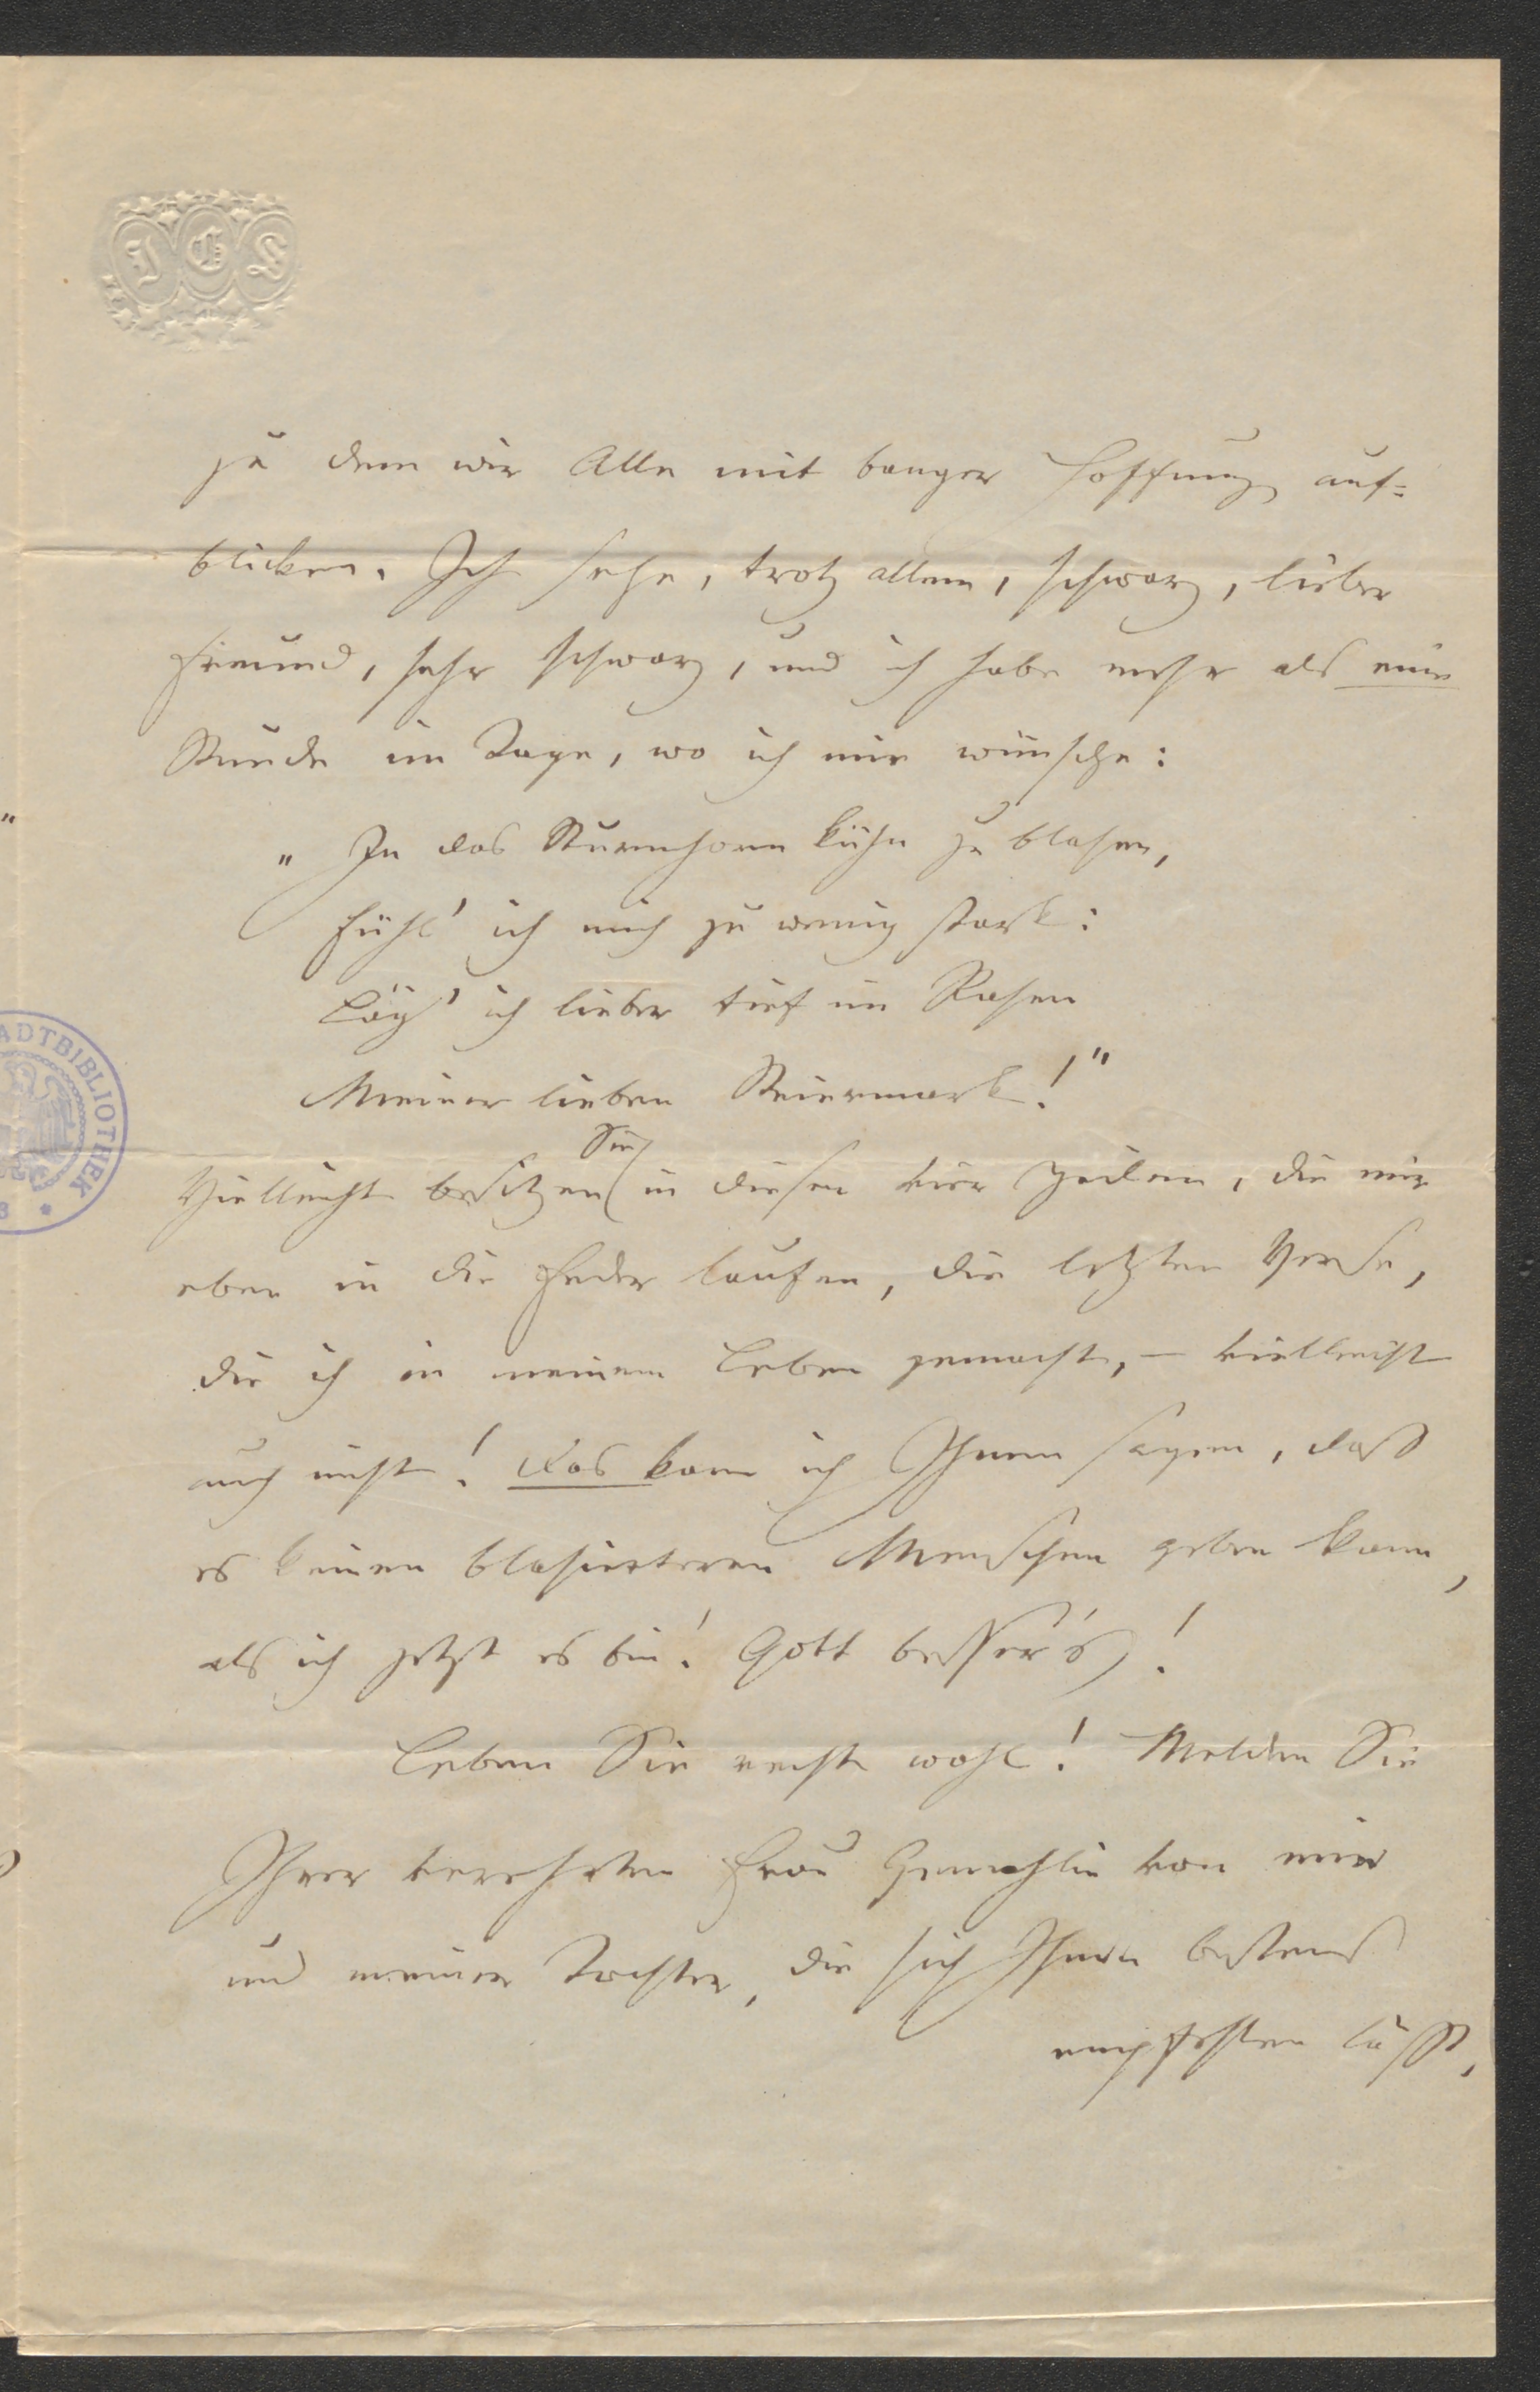 J G S
zu dem wir Alle mit banger Hoffnung auf=
blicken. Ich sehe, trotz allem, schwarz, lieber
Freund, sehr schwarz, und ich habe mehr als eine
Stunde im Tage, wo ich mir wünsche:
„In das Sturmhorn kühn zu blasen,
Fühl' ich mich zu wenig stark:
Läg' ich lieber tief im Rasen
Meiner lieben Steiermark!"
Sie
Vielleicht besitzen in diesen vier Zeilen, die mir
eben in die Feder laufen, die letzten Verse,
die ich in meinem Leben gemacht, – vielleicht
auch nicht! Das kann ich Ihnen sagen, daß
es keinen blasirteren Menschen geben kann,
als ich jetzt es bin! Gott besser's!
Leben Sie recht wohl! Melden Sie
Ihrer verehrten Frau Gemahlin von mir
und meiner Tochter, die sich Ihnen bestens
empfehlen läßt,
ADTBIBLIOTHEK